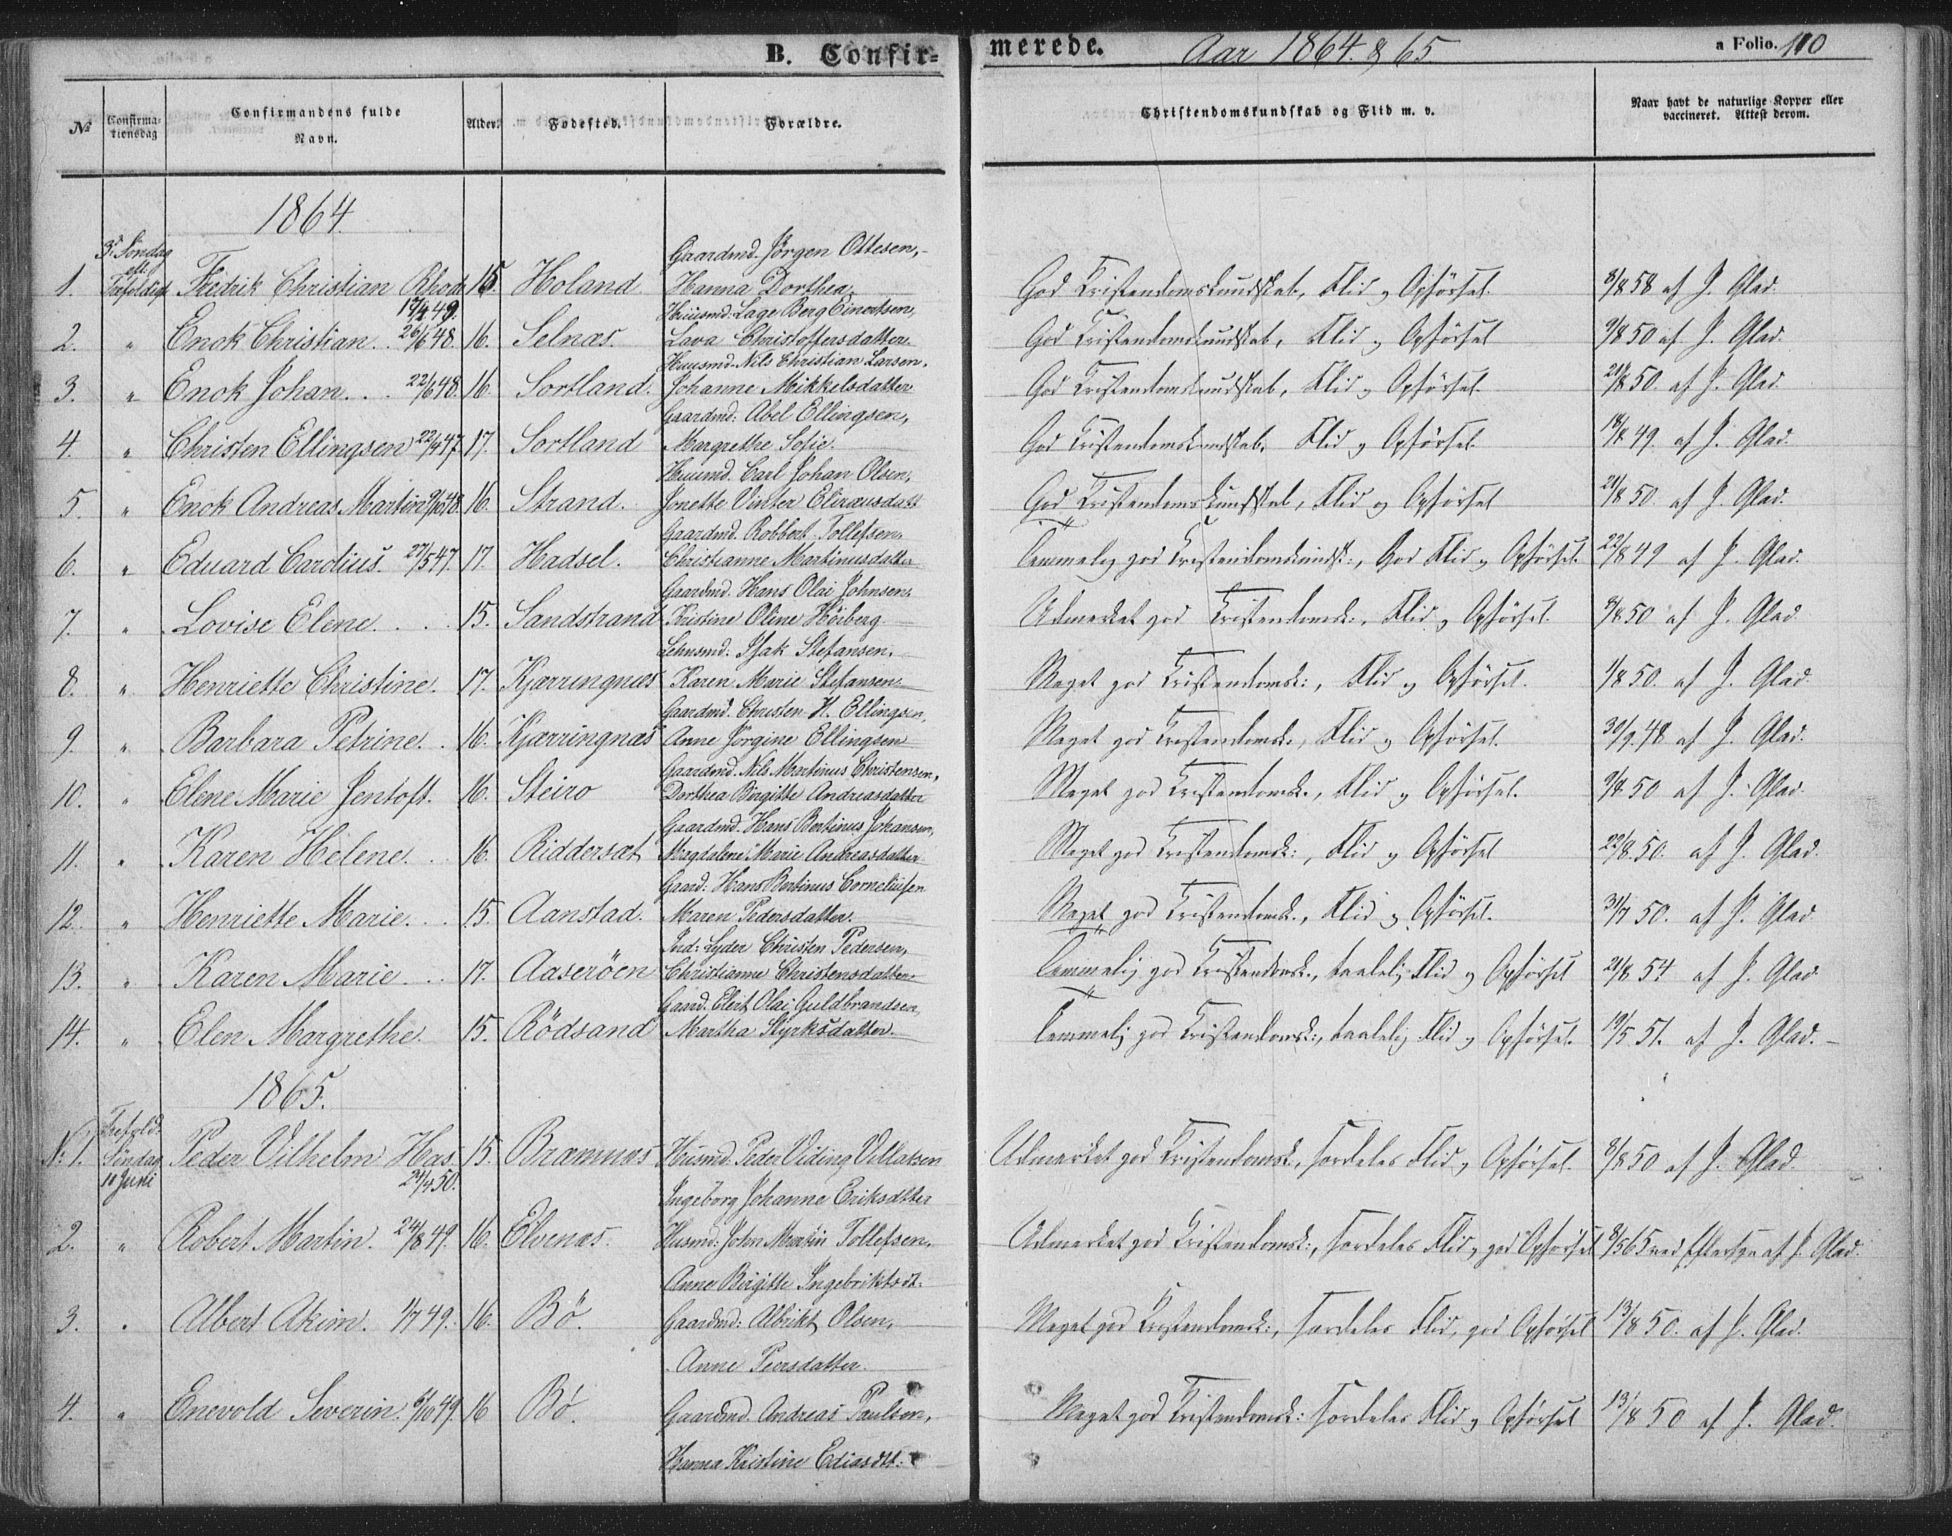 B. Confir-
merede.
Aar 1864. & 65
a Folio. 110
No
Confirma-
tionsdag
Confirmandens fulde
Navn.
Alder.
Fødested.
Forældre.
Christendomskundskab og Flid m. v.
Naar havt de naturlige Kopper eller
vaccineret. Attest derom.
1864.
3. Söndag
eft.
Gaardmd. Jörgen Ottesen,
1. Trefoldigh Fredrik Christian 15 Holand Hanna Dorthea. God Kristendomskundskab, Flid og Opförsel. 9/8 58 af J. Glad.
17/4 49.
Huusmd. Lage Berg Einertsen,
2. " Enok Christian. 26/6 48. 16. Selnæs. Lava Christoffersdatter. God Kristendomskundskab, Flid og Opförsel 9/8 50 af J. Glad.
Huusmd. Nils Christian Larsen,
3. " Enok Johan. . . 22/6 48. 16. Sortland. Johanne Mikkelsdatter God Kristendomskundskab, Flid og Opförsel 21/8 50. af J. Glad.
Gaardmd: Abel Ellingsen,
4. " Christen Ellingsen 22/4 47. 17. Sortland Margrethe Sofie. God Kristendomskundskab, Flid og Opförsel. 18/8 49. af J. Glad.
Huusmd. Carl Johan Olsen,
5. " Enok Andreas Martin 48. 16. Strand. Jonette Vinter God Kristendomskundskab, Flid og Opförsel 21/8 50. af J. Glad.
Gaardmd. Robbert Tollefsen.
6. " Eduard Cardius. 27/5 47. 17. Hadsel. Christianne Martinusdatter Temmelig god Kristendomskundsk:, God Flid og Opförsel. 22/8 49 af J. Glad.
Gaardmd. Hans Olai Johnsen,
7. " Lovise Elene. . . . 15. Sandstrand Kristine Oline Höiberg. Udmerket god Kristendomsk:, Flid og Opförsel. 9/8 50 af J. Glad
Lehnsmd: Isak Stefansen.
8. " Henriette Christine. 17. Kjærringnæs Karen Marie Stefansen. Meget god Kristendomsk:, Flid og Opförsel. 1/8 50. af J. Glad.
Gaardmd. Christen H. Ellingsen,
9. " Barbara Petrine. . 16. Kjærringnæs Anne Jörgine Ellingsen Meget god Kristendomsk:, Flid og Opförsel. 30/9. 48 af J. Glad.
Gaardmd. Nils Martinus Christensen,
10. " Elene Marie Jentoft. 16. Steiro Dorthea Birgitte Andreasdatter Meget god Kristendomsk:, Flid og Opförsel. 9/8 50 af J. Glad.
Gaardmd. Hans Bertinus Johansen,
11. " Karen Helene. . . 16. Riddersæt Magdalene Marie Andreasdatter Meget god Kristendomsk:, Flid og Opförsel 22/8. 50. af J. Glad.
Gaard: Hans Bertinus Corneliusen
12. " Henriette Marie. . . 15. Aanstad. Maren Pedersdatter. Meget god Kristendomsk:, Flid og Opförsel. 31/7 50. af J. Glad.
Lyder Christen Pedersen,
13. " Karen Marie. . . . 17. Aaseröen Christianne Christensdatter. Temmelig god Kristendomsk:, taalelig Flid og Opförsel 21/8 54 af J. Glad
Gaard. Elert Olai Guldbrandsen,
14. " Elen Margrethe. 15. Rödsand Martha Styrksdatter. Temmelig god Kristendomsk:, taalelig Flid og Opförsel. 19/5 51. af J. Glad. –
1865.
Trefold:
No 1. Söndag Peder Vilhelm 15. Bræmnæs Husmd. Peder Viding Villassen Udmerket god Kristendomsk:, særdeles Flid og Opförsel. 8/8 50 af J. Glad.
11 Juni 50. Ingeborg Johanne Eriksdtter
2. " Robert Martin. 24/8 49. 16. Elvenæs. Husmd: John Martin Tollefsen, Udmerket god Kristendomsk:, særdeles Flid og god Opförsel 8/5 65 ved af J. Glad.
Anne Birgitte Ingebriktsdt.
3. " Albert Akim. 1/7 49. 16. Bö. Gaardmd: Albrikt Olsen, Meget god Kristendomsk:, særdeles Flid, god Opförsel 13/8 50. af J. Glad.
Anne Peersdatter.
4. " Enevold Severin. 6/10 49. 16 Bö. Gaardmd Andreas Paulsen, Meget god Kristendomsk: særdeles Flid og Opförsel 13/8 50 af J. Glad.
Hanna Kristine